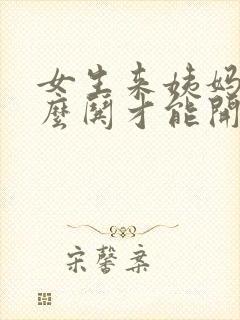 女生来姨妈
麼闋才能開
宋馨案